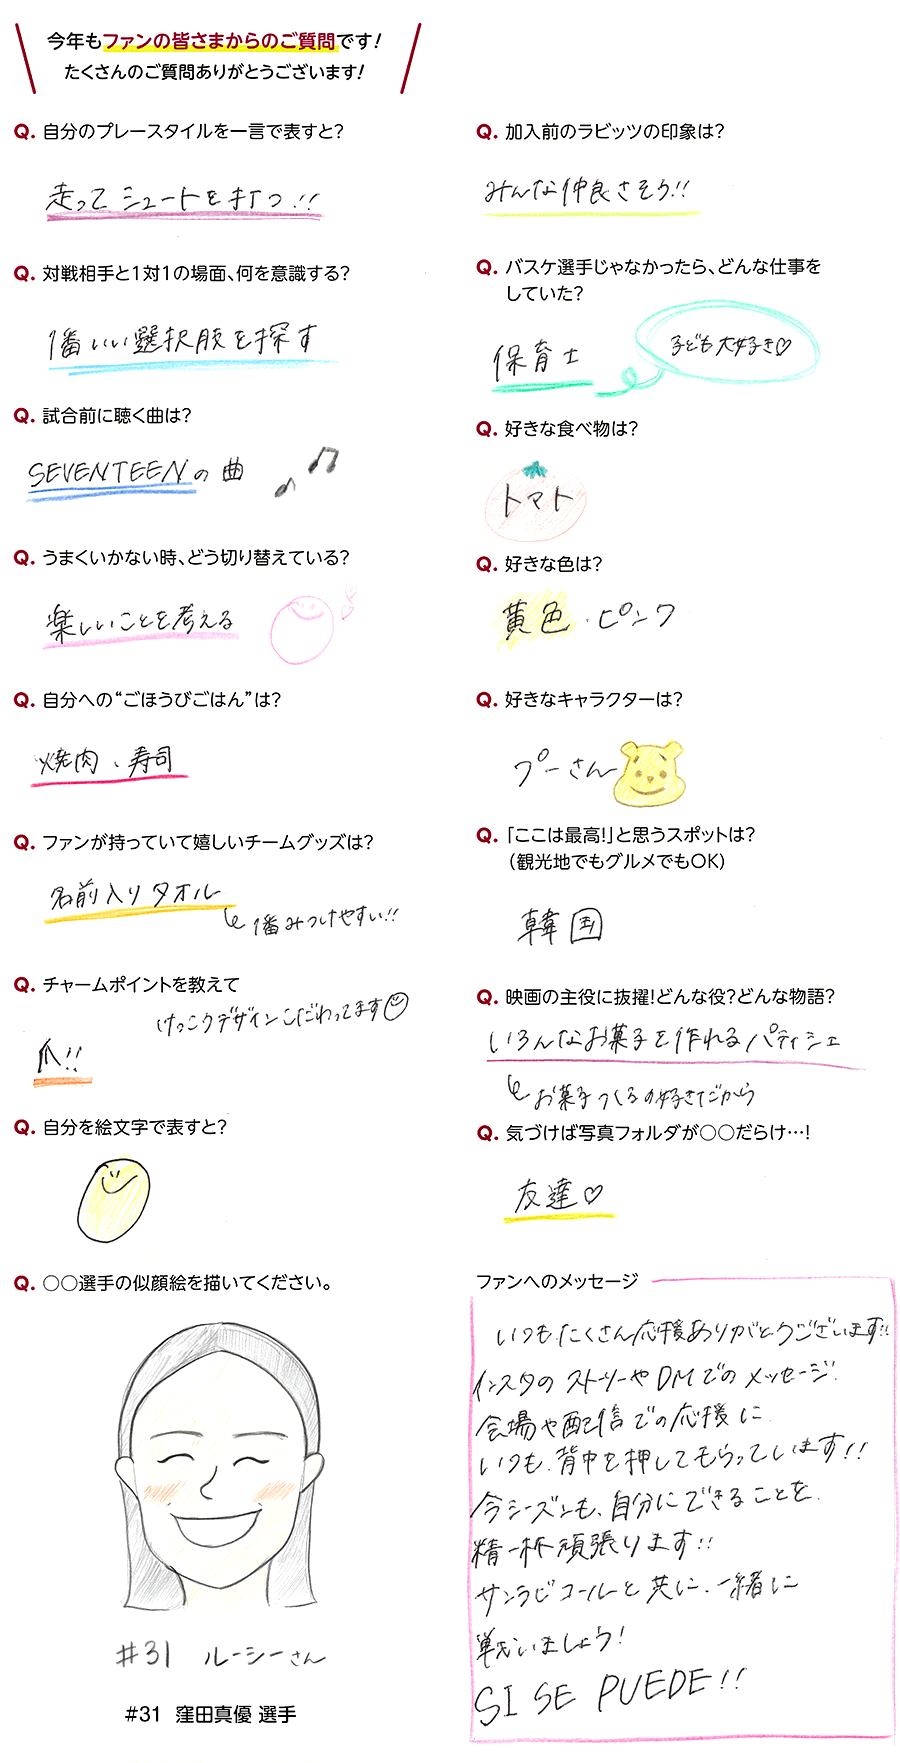 今年もファンの皆さまからのご質問です!
たくさんのご質問ありがとうございます!
Q. 自分のプレースタイルを一言で表すと?
走って シュートを打つ!!
Q. 対戦相手と1対1の場面、何を意識する?
1番いい選択肢を探す
Q. 試合前に聴く曲は?
SEVENTEENの曲
Q. うまくいかない時、どう切り替えている?
楽しいことを考える
Q. 自分への“ごほうびごはん”は?
焼肉、寿司
Q. ファンが持っていて嬉しいチームグッズは?
名前入りタオル
1番みつけやすい!!
Q. チャームポイントを教えて
けっこうデザインこだわってます
爪!!
Q. 自分を絵文字で表すと?
Q. 〇〇選手の似顔絵を描いてください。
#31 ルーシーさん
#31 窪田真優 選手
Q. 加入前のラビッツの印象は?
みんな仲良さそう!!
Q. バスケ選手じゃなかったら、どんな仕事を
していた?
保育士
子ども大好き♡
Q. 好きな食べ物は?
トマト
Q. 好きな色は?
黄色・ピンク
Q. 好きなキャラクターは?
プーさん
Q. 「ここは最高!」と思うスポットは?
(観光地でもグルメでもOK)
韓国
Q. 映画の主役に抜擢!どんな役?どんな物語?
いろんなお菓子を作れるパティシエ
お菓子つくるの好きだから
Q. 気づけば写真フォルダが〇〇だらけ…!
友達♡
ファンへのメッセージ
いつもたくさん応援ありがとうございます!!
インスタのストーリーやDMでのメッセージ、
会場や配信での応援に
いつも、背中を押してもらっています!!
今シーズンも、自分にできることを、
精一杯頑張ります!!
サンラビコールと共に、一緒に
戦いましょう!
SI SE PUEDE!!